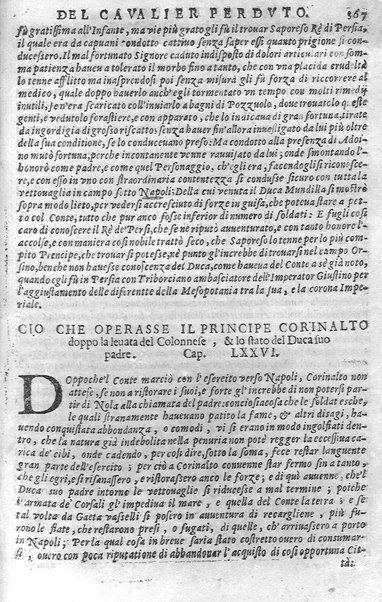 DEL CAVALIER PERDVTO. 367
fù gratissima all'Infante, ma vie più grato gli fù il trouar Saporeso Rè di Persia,
il quale era da capuani condotto cattiuo senza saper essi quanto prigione si con-
ducesero. Il mal fortunato Signore caduto indisposto di dolori articulari con som-
ma patienza haueua tolerato il morbo fino a tanto, che con vna placida crudeltà
lo tenne afflitto ma inasprendosi poi senza misura gli fù forza di riccorrere al
medico, quale doppo hauerlo anch'egli tormentato vn tempo con mille rimedij
inutili, se n'era scaricato coll'inuiarlo a bagni di Pozzuolo, doue trouatolo queste
genti, e vedutolo forastiere, e con apparato, che lo indicaua di gran fortuna, tirate
da ingordigia di grosso riscatto, senza hauer fin'allora inuestigato da lui più oltre
della sua conditione, se lo conduceuano preso: Ma condotto alla presenza di
mò mutò fortuna, perche incontanente venne rauuisato da lui, onde smontando l'-
honorò come padre, e come quel Personaggio, ch'egli era, facendoglisi riconosce-
re, e con esso in vno con straordinaria contentezza si condusse sicuro con tutta la
vettouaglia in campo sotto Napoli: Della cui venuta il Duca Mundilla si mostrò
sopra modo lieto, per vedersi accresciuto di forze in guisa, che poteua stare a pet-
to col Conte, tutto che pur anco fosse inferior di numero di soldati: E fugli così
caro di conoscere il Rè de' Persi, che se nè riputò auuenturato, e con tanto honore l'-
accolse, e con maniera così nobile trattò seco, che Saporeso lo tenne per lo più com-
pito Prencipe, che trouar si potesse, nè punto gl'increbbe di trouarsi nel campo Or-
sino, benche non hauesse conoscenza del Duca, come haueua del Conte a sè già noto,
quando egli fù in Persia con Triborciano ambasciatore dell'Imperator Giustino per
l'aggiustamento delle differente della Mesopotania tra la sua, e la corona Imperiale.
CIO CHE OPERASSE IL PRINCIPE CORINALTO
doppo la leuata del Colonnese, & lo stato del Duca suo
padre. Cap. LXXVI.
DOppoche'l Conte marciò con l'esercito verso Napoli, Corinalto non
attese, se non a ristorare i suoi, e forte gl'increbbe di non potersi par-
tir di Nola alla chiamata del padre: conciosiacosa che le soldatesche,
le quali stranamente haueuano patito la fame, & altri disagi, ha-
uendo conquistata abbondanza, o comodi, vi si erano in modo ingolfati den-
tro, che la natura già indebolita nella penuria non potè regger la eccessiua ca-
rica de' cibi, onde cadendo, per così dire, sotto la soma, fece restar languente
gran parte dell'esercito; per ciò a Corinalto conuenne star fermo sin a tanto,
che gli egri, e si risanassero, e ristorassero anco le forze; e di quì auuenne, che'l
Duca suo padre intorno le vettouaglie si riducesse a mal termine; poiche
l'armata de' Corsali gl'impediua il mare, e quella del Conte la terra; e se
tal volta da Gaeta vasselli si posero in auuentura di recargliene, più fu-
rono le fiate, che restarono presi, o fugati, di quelle, ch'arriuassero a porto
in Napoli: Per la qual cosa in breue saria stato costretto ouero di consumar-
si, ouero con poca riputatione di abbandonar l'acquisto di così opportuna Cit-
tà: